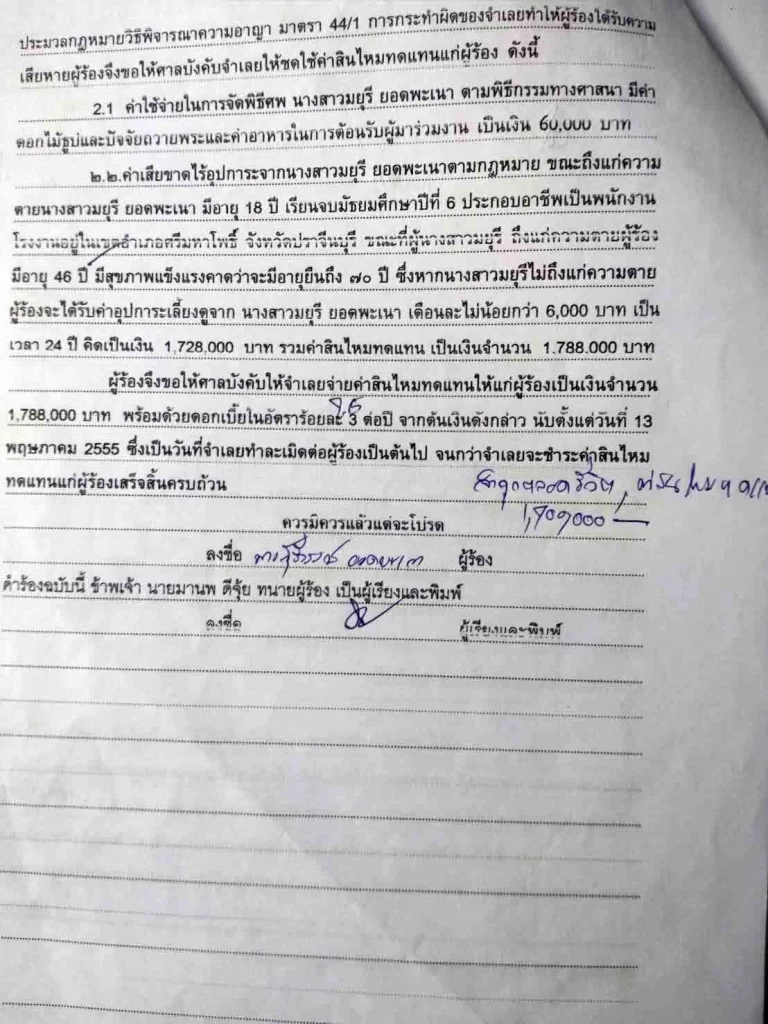 ประมวลกฎหมายวิธีพิจารณาความอาญา มาตรา 44/1 การกระทำผิดของจำเลยทำให้ผู้ร้องได้รับความ
เสียหายผู้ร้องจึงขอให้ศาลบังคับจำเลยให้ชดใช้ค่าสินไหมทดแทนแก่ผู้ร้อง ดังนี้
2.1 ค่าใช้จ่ายในการจัดพิธีศพ นางสาวมยุรี ยอดพะเนา ตามพิธีกรรมทางศาสนา มีค่า
ดอกไม้ธูปและปัจจัยถวายพระและค่าอาหารในการต้อนรับผู้มาร่วมงาน เป็นเงิน 60,000 บาท
๒.๒.ค่าเสียขาดไร้อุปการะจากนางสาวมยุรี ยอดพะเนาตามกฎหมาย ขณะถึงแก่ความ
ตายนางสาวมยุรี ยอดพะเนา มีอายุ 18 ปี เรียนจบมัธยมศึกษาปีที่ 6 ประกอบอาชีพเป็นพนักงาน
โรงงานอยู่ในเขตอำเภอศรีมหาโพธิ์ จังหวัดปราจีนบุรี ขณะที่ผู้นางสาวมยุรี ถึงแก่ความตายผู้ร้อง
มีอายุ 46 ปี มีสุขภาพแข็งแรงคาดว่าจะมีอายุยืนถึง ๗๐ ปี ซึ่งหากนางสาวมยุรีไม่ถึงแก่ความตาย
ผู้ร้องจะได้รับค่าอุปการะเลี้ยงดูจาก นางสาวมยุรี ยอดพะเนา เดือนละไม่น้อยกว่า 6,000 บาท เป็น
เวลา 24 ปี คิดเป็นเงิน 1,728,000 บาท รวมค่าสินไหมทดแทน เป็นเงินจำนวน 1.788.000 บาท
ผู้ร้องจึงขอให้ศาลบังคับให้จำเลยจ่ายค่าสินไหมทดแทนให้แก่ผู้ร้องเป็นเงินจำนวน
1,788,000 บาท พร้อมด้วยดอกเบี้ยในอัตราร้อยละ 3 ต่อปี จากต้นเงินดังกล่าว นับตั้งแต่วันที่ 13
พฤษภาคม 2555 ซึ่งเป็นวันที่จำเลยทำละเมิดต่อผู้ร้องเป็นต้นไป จนกว่าจำเลยจะชำระค่าสินไหม
ทดแทนแก่ผู้ร้องเสร็จสิ้นครบถ้วน
ควรมิควรแล้วแต่จะโปรด
ลงชื่อ ผู้ร้อง
คำร้องฉบับนี้ ข้าพเจ้า นายมานพ ดีจุ้ย ทนายผู้ร้อง เป็นผู้เรียงและพิมพ์
ลงชื่อ ผู้เรียงและพิมพ์